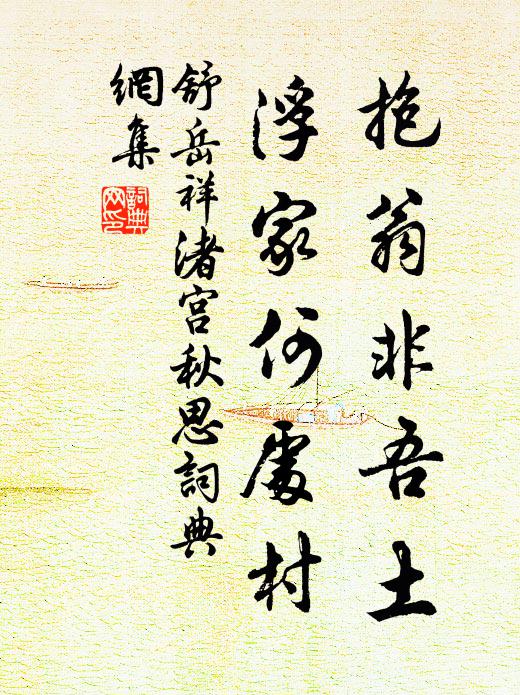 抱翁非吾土
浮家何處村
舒岳祥渚宮秋思詞典
網集
詞典網印